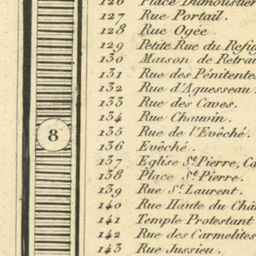 126 Place Dumoustier
127 Rue Portail.
128 Rue Ogée
129 Petite Rue du Refu
130 Maison de Retrai
131 Rue des Pénitentes
132 Rue d'Aguesseau.
133 Rue des Caves.
134 Rue Chauvin.
135 Rue de l'Evêché.
136 Evêché.
137 Eglise St. Pierre, Ca
138 Place St. Pierre.
139 Rue St. Laurent.
140 Rue Haute du Châ
141 Temple Protestant
142 Rue des Carmelites
143 Rue Jussieu.
8